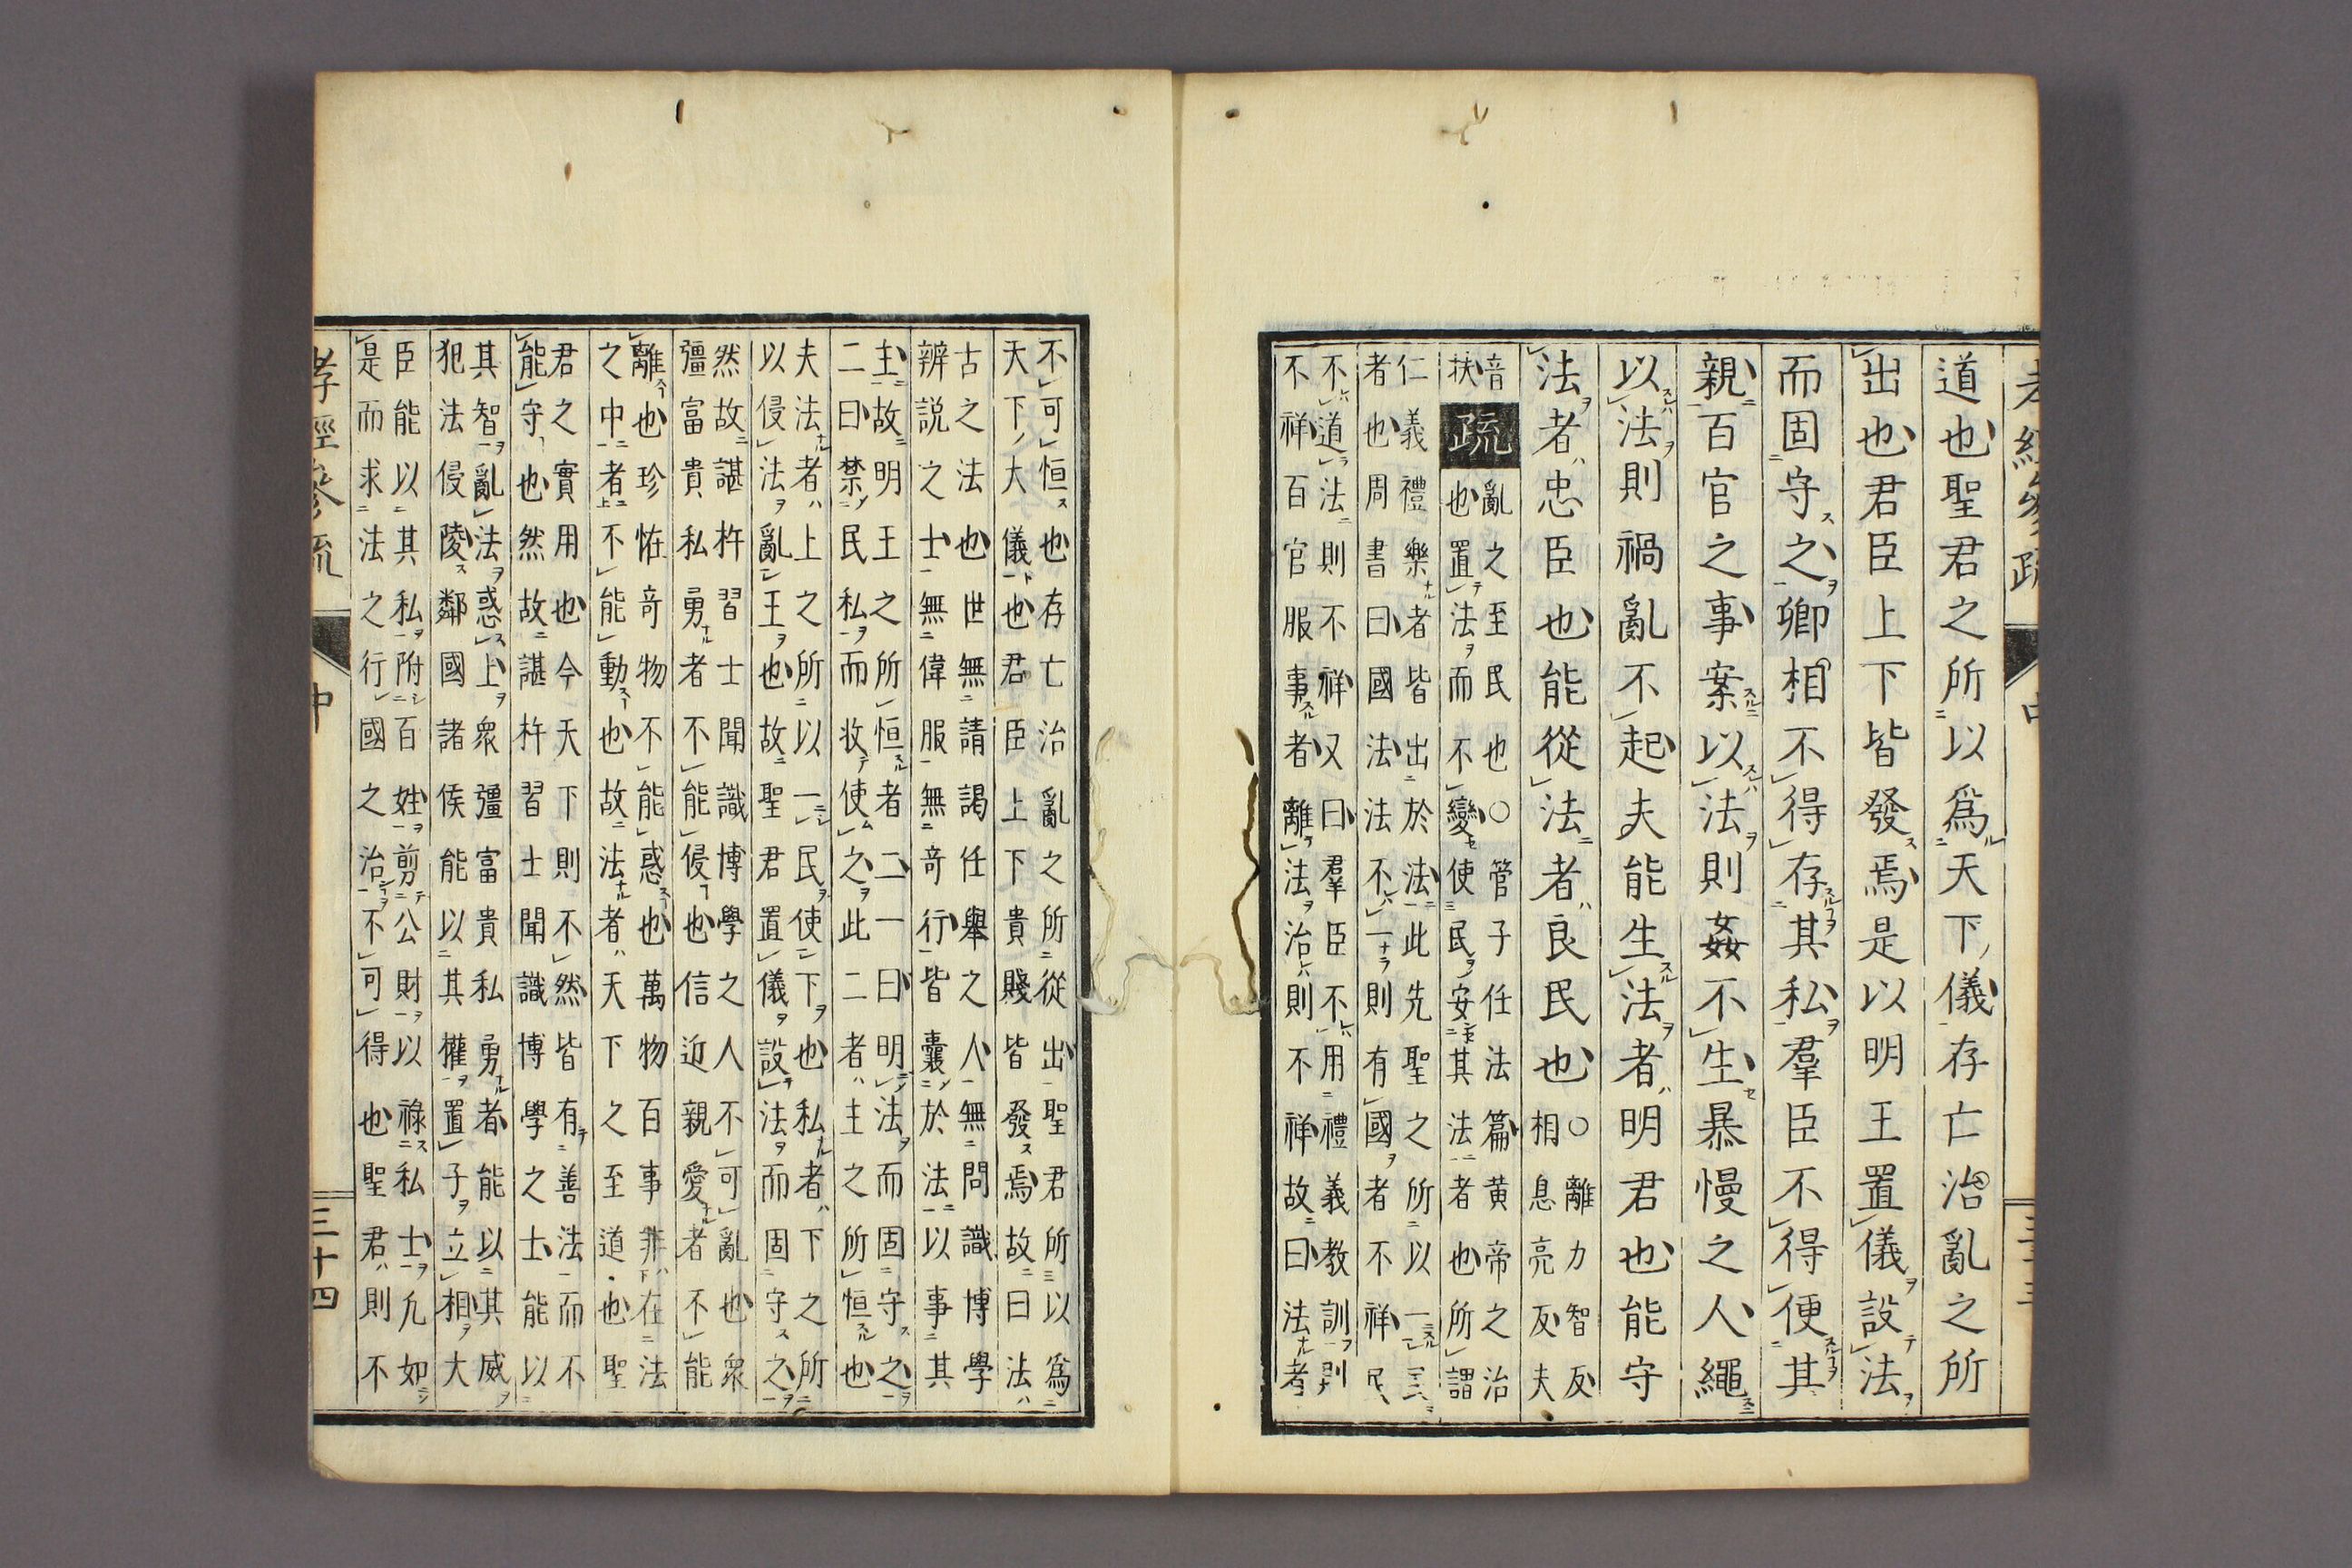 道也聖君之所以爲天下儀存亡治亂之所
出也君臣上下皆發焉是以明王置儀設法
而固守之卿相不得存其私羣臣不得便其
親百官之事案以法則姦不生暴慢之人繩
以法則禍亂不起夫能生法者明君也能守
法者忠臣也能從法者良民也○離力智反
相息亮反夫
音
扶
疏
亂之至民也○管子任法篇黄帝之治
也置法而不變使民安其法者也所謂
仁義禮樂者皆出於法此先聖之所以一
者也周書曰國法法不一則有國者不祥民
不道法則不祥又曰羣臣不用禮義教訓則
不祥百官服事者離法治則不祥故曰法者
不可恒也存亡治亂之所從出聖君所以爲
天下大儀也君臣上下貴賤皆發焉故曰法
古之法也世無請謁任舉之人無問識博學
辨説之士無偉服無竒行皆囊於法以事其
主故明王之所恒者二一曰明法而固守之
二曰禁民私而收使之此二者主之所恒也
夫法者上之所以一民使下也私者下之所
以侵法亂王也故聖君置儀設法而固守之
然故諶杵習士聞識博學之人不可亂也衆
彊富貴私勇者不能侵也信近親愛者不能
離也珍恠竒物不能惑也萬物百事非在法
之中者不能動也故法者天下之至道也聖
君之實用也今天下則不然皆有善法而不
能守也然故諶杵習士聞識博學之士能以
其智亂法惑上衆彊富貴私勇者能以其威
犯法侵陵鄰國諸侯能以其權置子立相大
臣能以其私附百姓剪公財以祿私士凢如
是而求法之行國之治不可得也聖君則不
孝經參疏
中
三十四